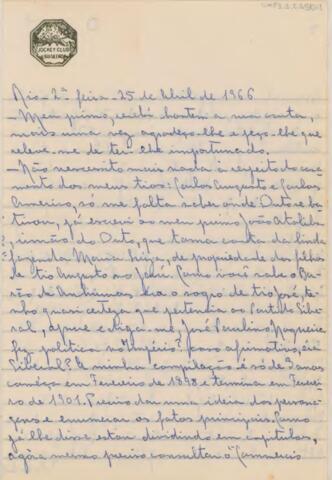 JOCKEY CLUB
BRASILEIRO
Rio - 2ª feira - 25 de Abril de 1966
- Meu primo, recebi hontem a sua carta,
mais uma vez agradeço-lhe e peço-lhe que
releve-me de ter-lhe importunado.
- Não necessito mais nada à respeito do casa
mento dos meus tios: Carlos Augusto e Carlos
Americo, só me falta saber onde Dato se ba
tisou, já escrevi ao meu primo João
irmão do Dato, que toma conta da linda
fazenda Maria Luiza, de propriedade dos filhos
de tio Augusto no Jahú. Como você sabe o Ba
rão de era o sogro de tio José, te
nho quasi certeza que pertencia ao Partido Libe
ral, apure e diga-me, José Paulino Nogueira
fez politica no Imperio? Caso afirmativo, era
Liberal? A minha compilação é só de 3 anos
começa em Fevereiro de 1898 e termina em Feverei
ro de 1901. Preciso dar uma ideia dos persona
gens e enumerar os fatos principais. Como
já lhe disse estou dividindo em capitulos,
agora mesmo preciso consultar o "Commercio